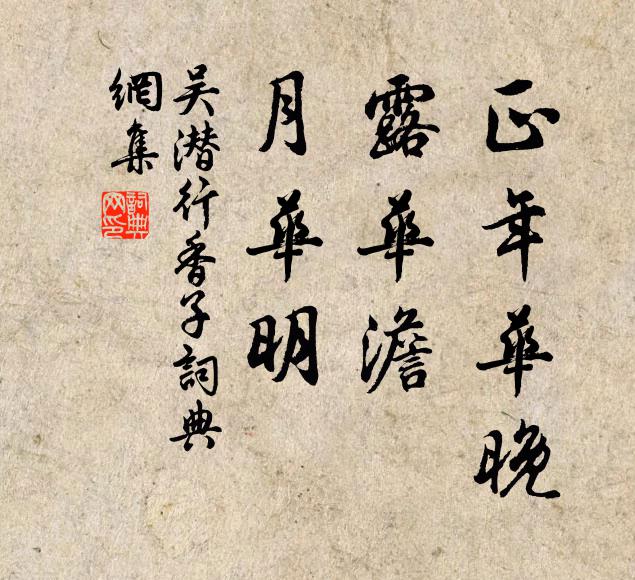 正年華晚
露華澹
月華明
吴潜行香子詞典
網集
詞典
网印